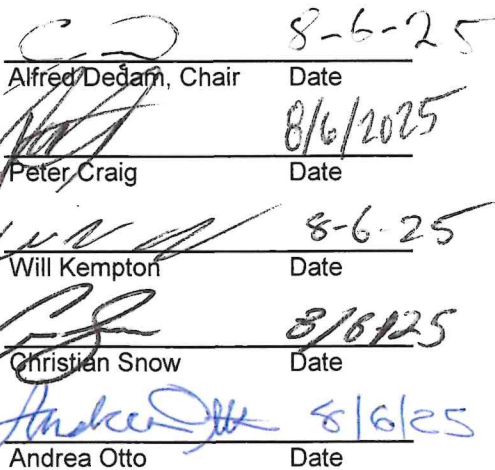 8-6-25
Alfred Dedam, Chair Date
8/6/2025
Peter Craig Date
8-6-25
Will Kempton Date
8/6/25
Christian Snow Date
Andrea Otto 8/6/25
Andrea Otto Date